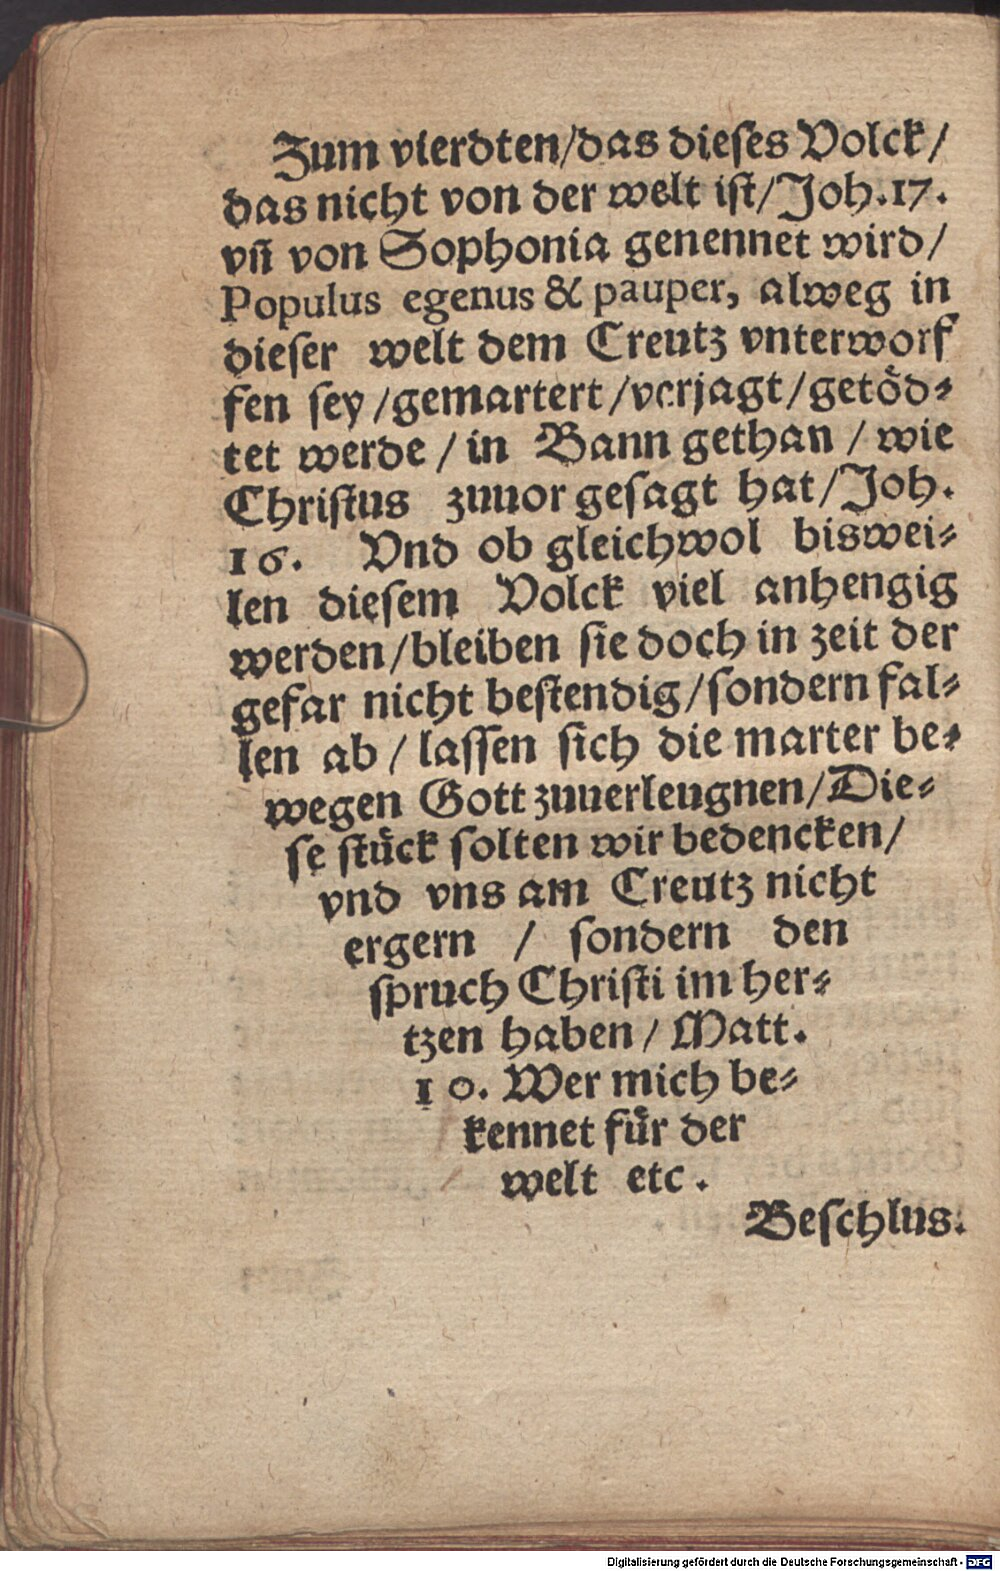 Zum vierdten/das dieses Volck/
das nicht von der welt ist/Joh.17.
vñ von Sophonia genennet wird/
Populus egenus & pauper, alweg in
dieser welt dem Creutz vnterworf
fen sey/gemartert/verjagt/getöd-
tet werde/in Bann gethan/wie
Christus zuuor gesagt hat/Joh.
16. Vnd ob gleichwol biswei-
len diesem Volck viel anhengig
werden/bleiben sie doch in zeit der
gefar nicht bestendig/sondern fal-
len ab/lassen sich die marter be-
wegen Gott zuuerleugnen/Die-
se stück solten wir bedencken/
vnd vns am Creutz nicht
ergern / sondern den
spruch Christi im her-
tzen haben/Matt.
10. Wer mich be-
kennet für der
welt etc.
Beschlus.
Digitalisierung gefördert durch die Deutsche Forschungsgemeinschaft - DFG